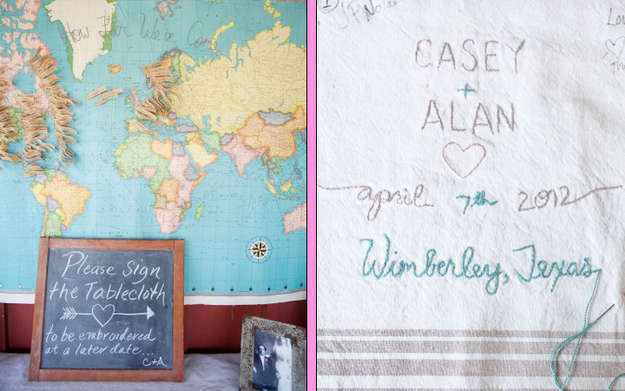 How Far We've Come
Please Sign
the Tablecloth
to be embroidered
at a later date...
C+A
CASEY
+
ALAN
april 7th 2012
Wimberley, Texas